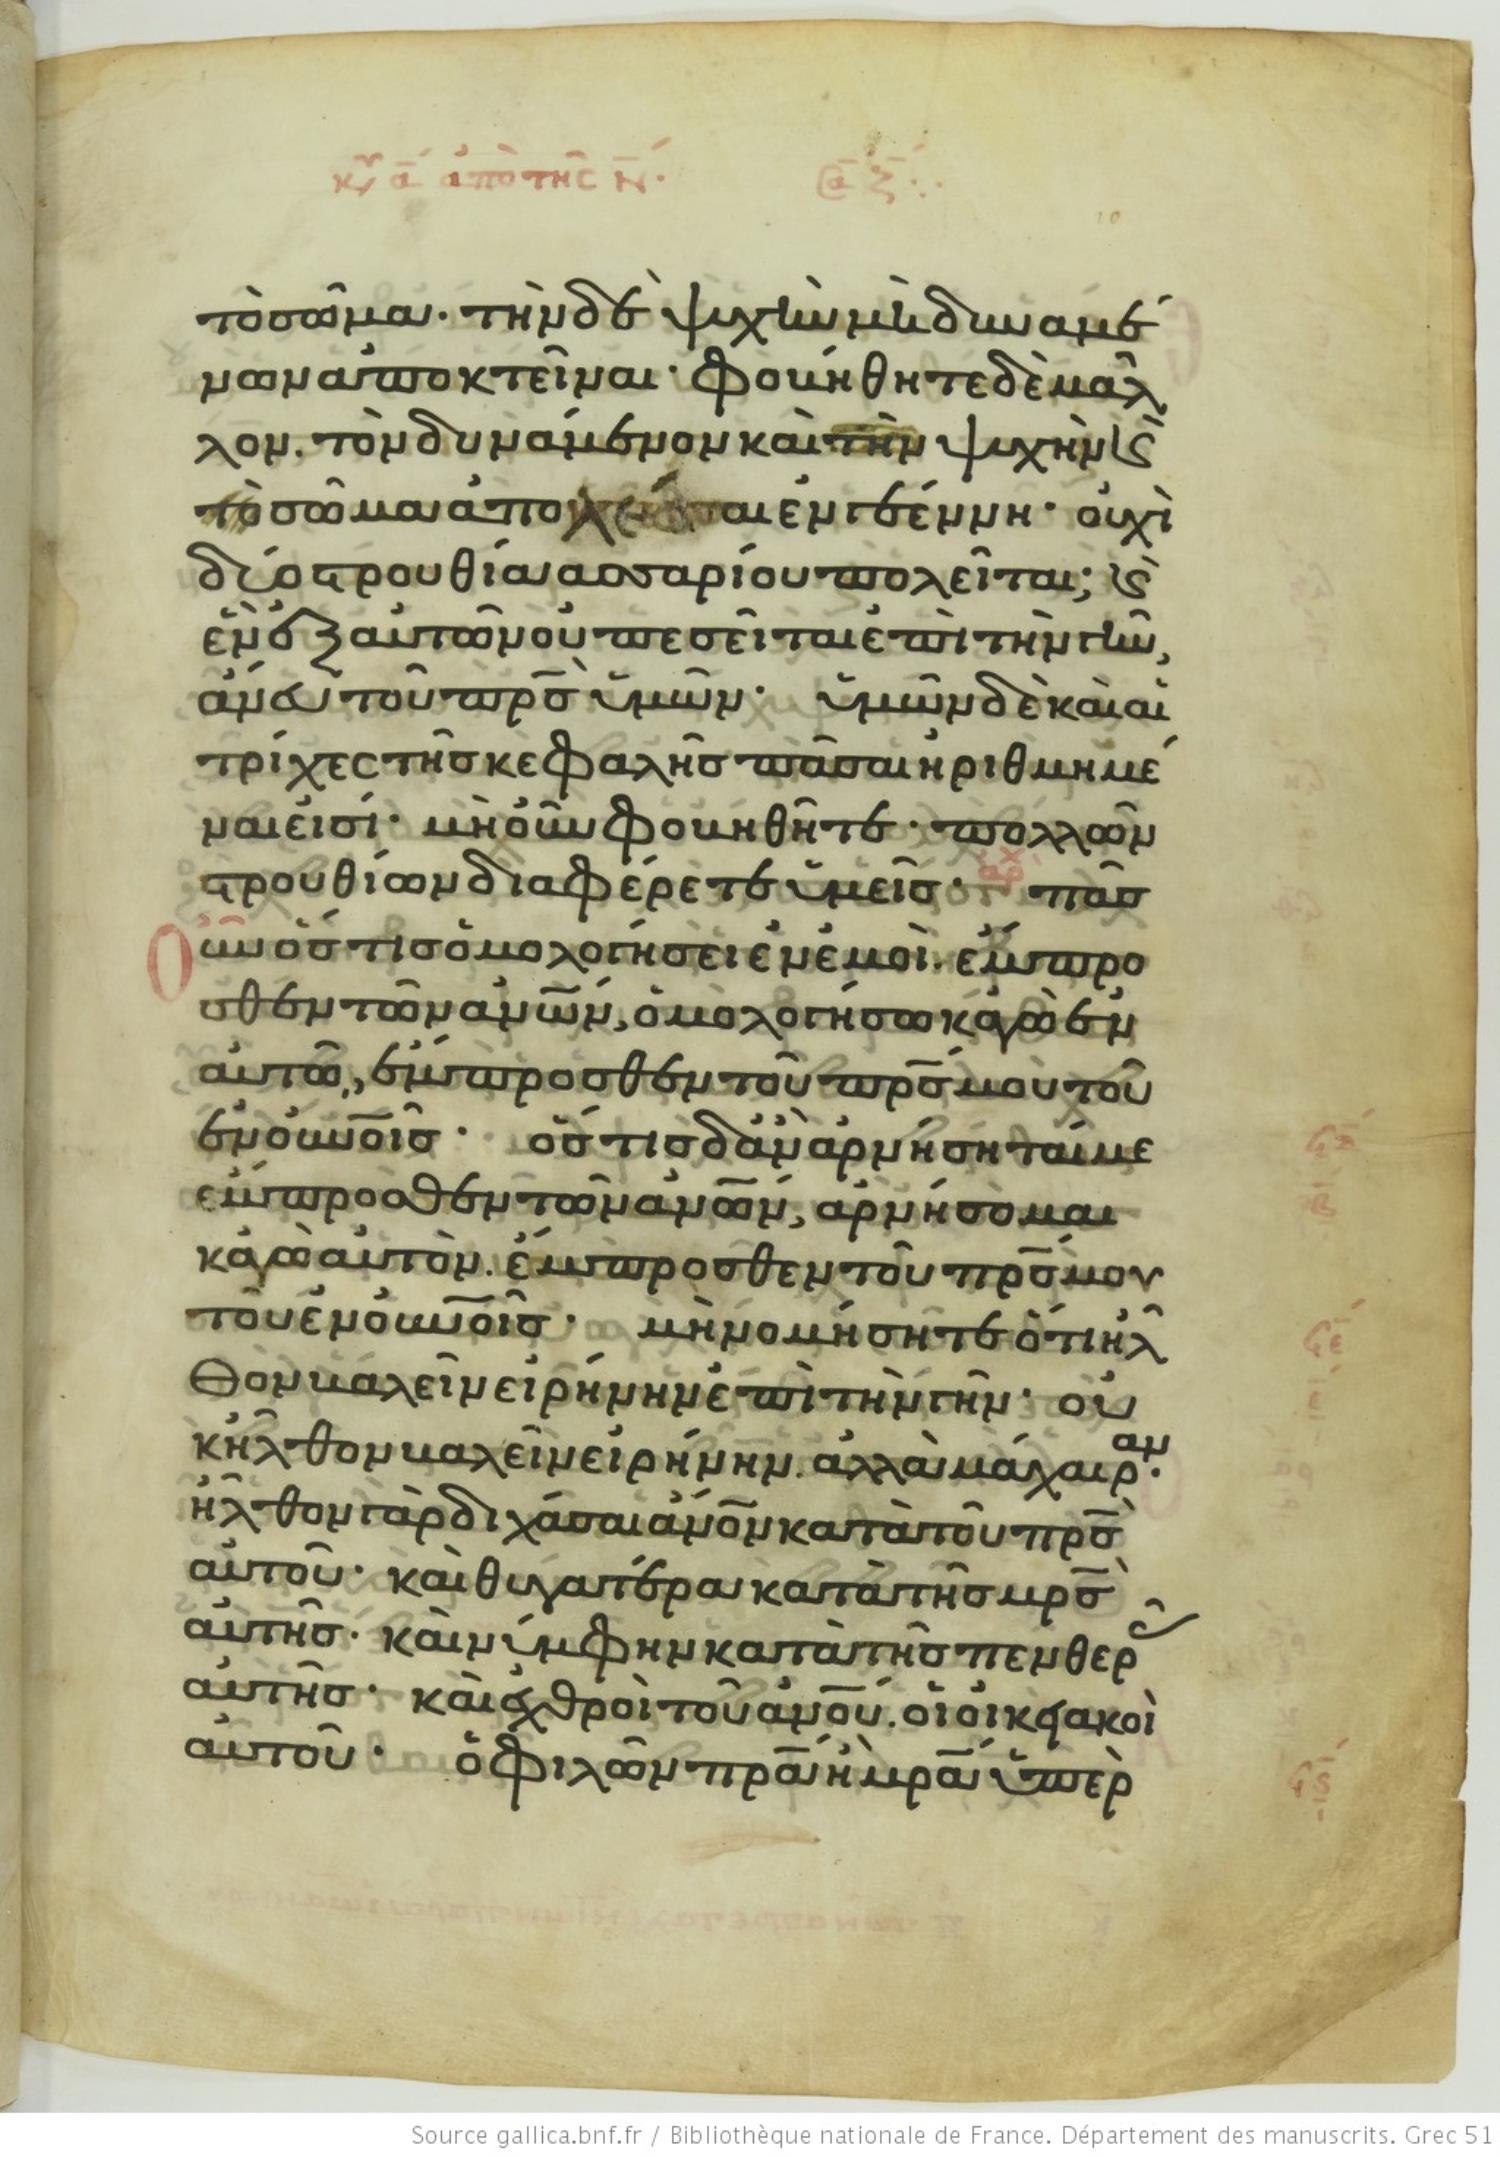 κυ α ἀπὸ τῆς ν
τὸ σῶμα· τὴν δὲ ψυχὴν μὴ δυναμέ
νων ἀποκτεῖναι· φοβήθητε δὲ μᾶλ
λον. τὸν δυνάμενον καὶ τὴν ψυχὴν ϗ
τὸ σῶμα ἀπολέσαι ἐν γεέννη· οὐχὶ
δύο στρουθία ἀσσαρίου πωλεῖται; ϗ
ἓν ἐξ αὐτῶν οὐ πεσεῖται ἐπὶ τὴν γῆν,
ἄνευ τοῦ πρς ὑμῶν· ὑμῶν δὲ καὶ αἱ
τρίχες τῆς κεφαλῆς πᾶσαι ἠριθμημέ
ναι εἰσί· μὴ οὖν φοβηθῆτε· πολλῶν
στρουθίων διαφέρετε ὑμεῖς· πᾶς
οὖν ὅστις ὁμολογήσει ἐν ἐμοὶ. ἔμπρο
σθεν τῶν ἀνων, ὁμολογήσω κἀγὼ ἐν
αὐτῶ, ἔμπροσθεν τοῦ πρς μου τοῦ
ἐν οὐνοις· ὅστις δ' ἂν ἀρνήσηταί με
ἔμπροσθεν τῶν ἀνων, ἀρνήσομαι
κἀγὼ αὐτὸν. ἔμπροσθεν τοῦ πρς μου
τοῦ ἐν οὐνοις· μὴ νομήσητε ὅτι ἦλ
θον βαλεῖν εἰρήνην ἐπὶ τὴν γῆν· οὐ
κ ἦλθον βαλεῖν εἰρήνην. ἀλλὰ μάχαιραν·
ἦλθον γὰρ διχάσαι ἄνον κατὰ τοῦ πρς
αὐτοῦ· καὶ θυγατέρα κατὰ τῆς μρς
αὐτῆς· καὶ νύμφην κατὰ τῆς πενθερᾶς
αὐτῆς· καὶ ἐχθροὶ τοῦ ἀνου. οἱ οἰκειακοὶ
αὐτοῦ· ὁ φιλῶν πρα ἢ μρα ὑπὲρ
Source gallica.bnf.fr / Bibliothèque nationale de France. Département des manuscrits. Grec 51